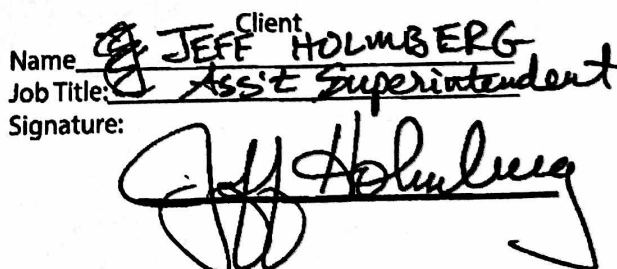 Client
Name JEFF HOLMBERG
Job Title: Ass't Superintendent
Signature:
Jeff Holmberg